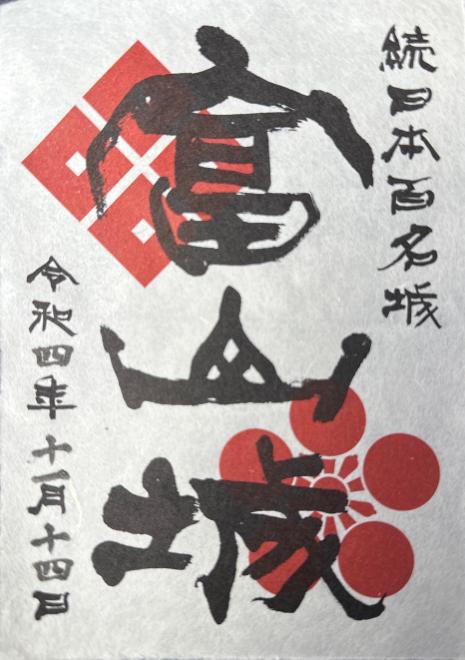 続日本百名城
富山城
令和四年十一月十四日